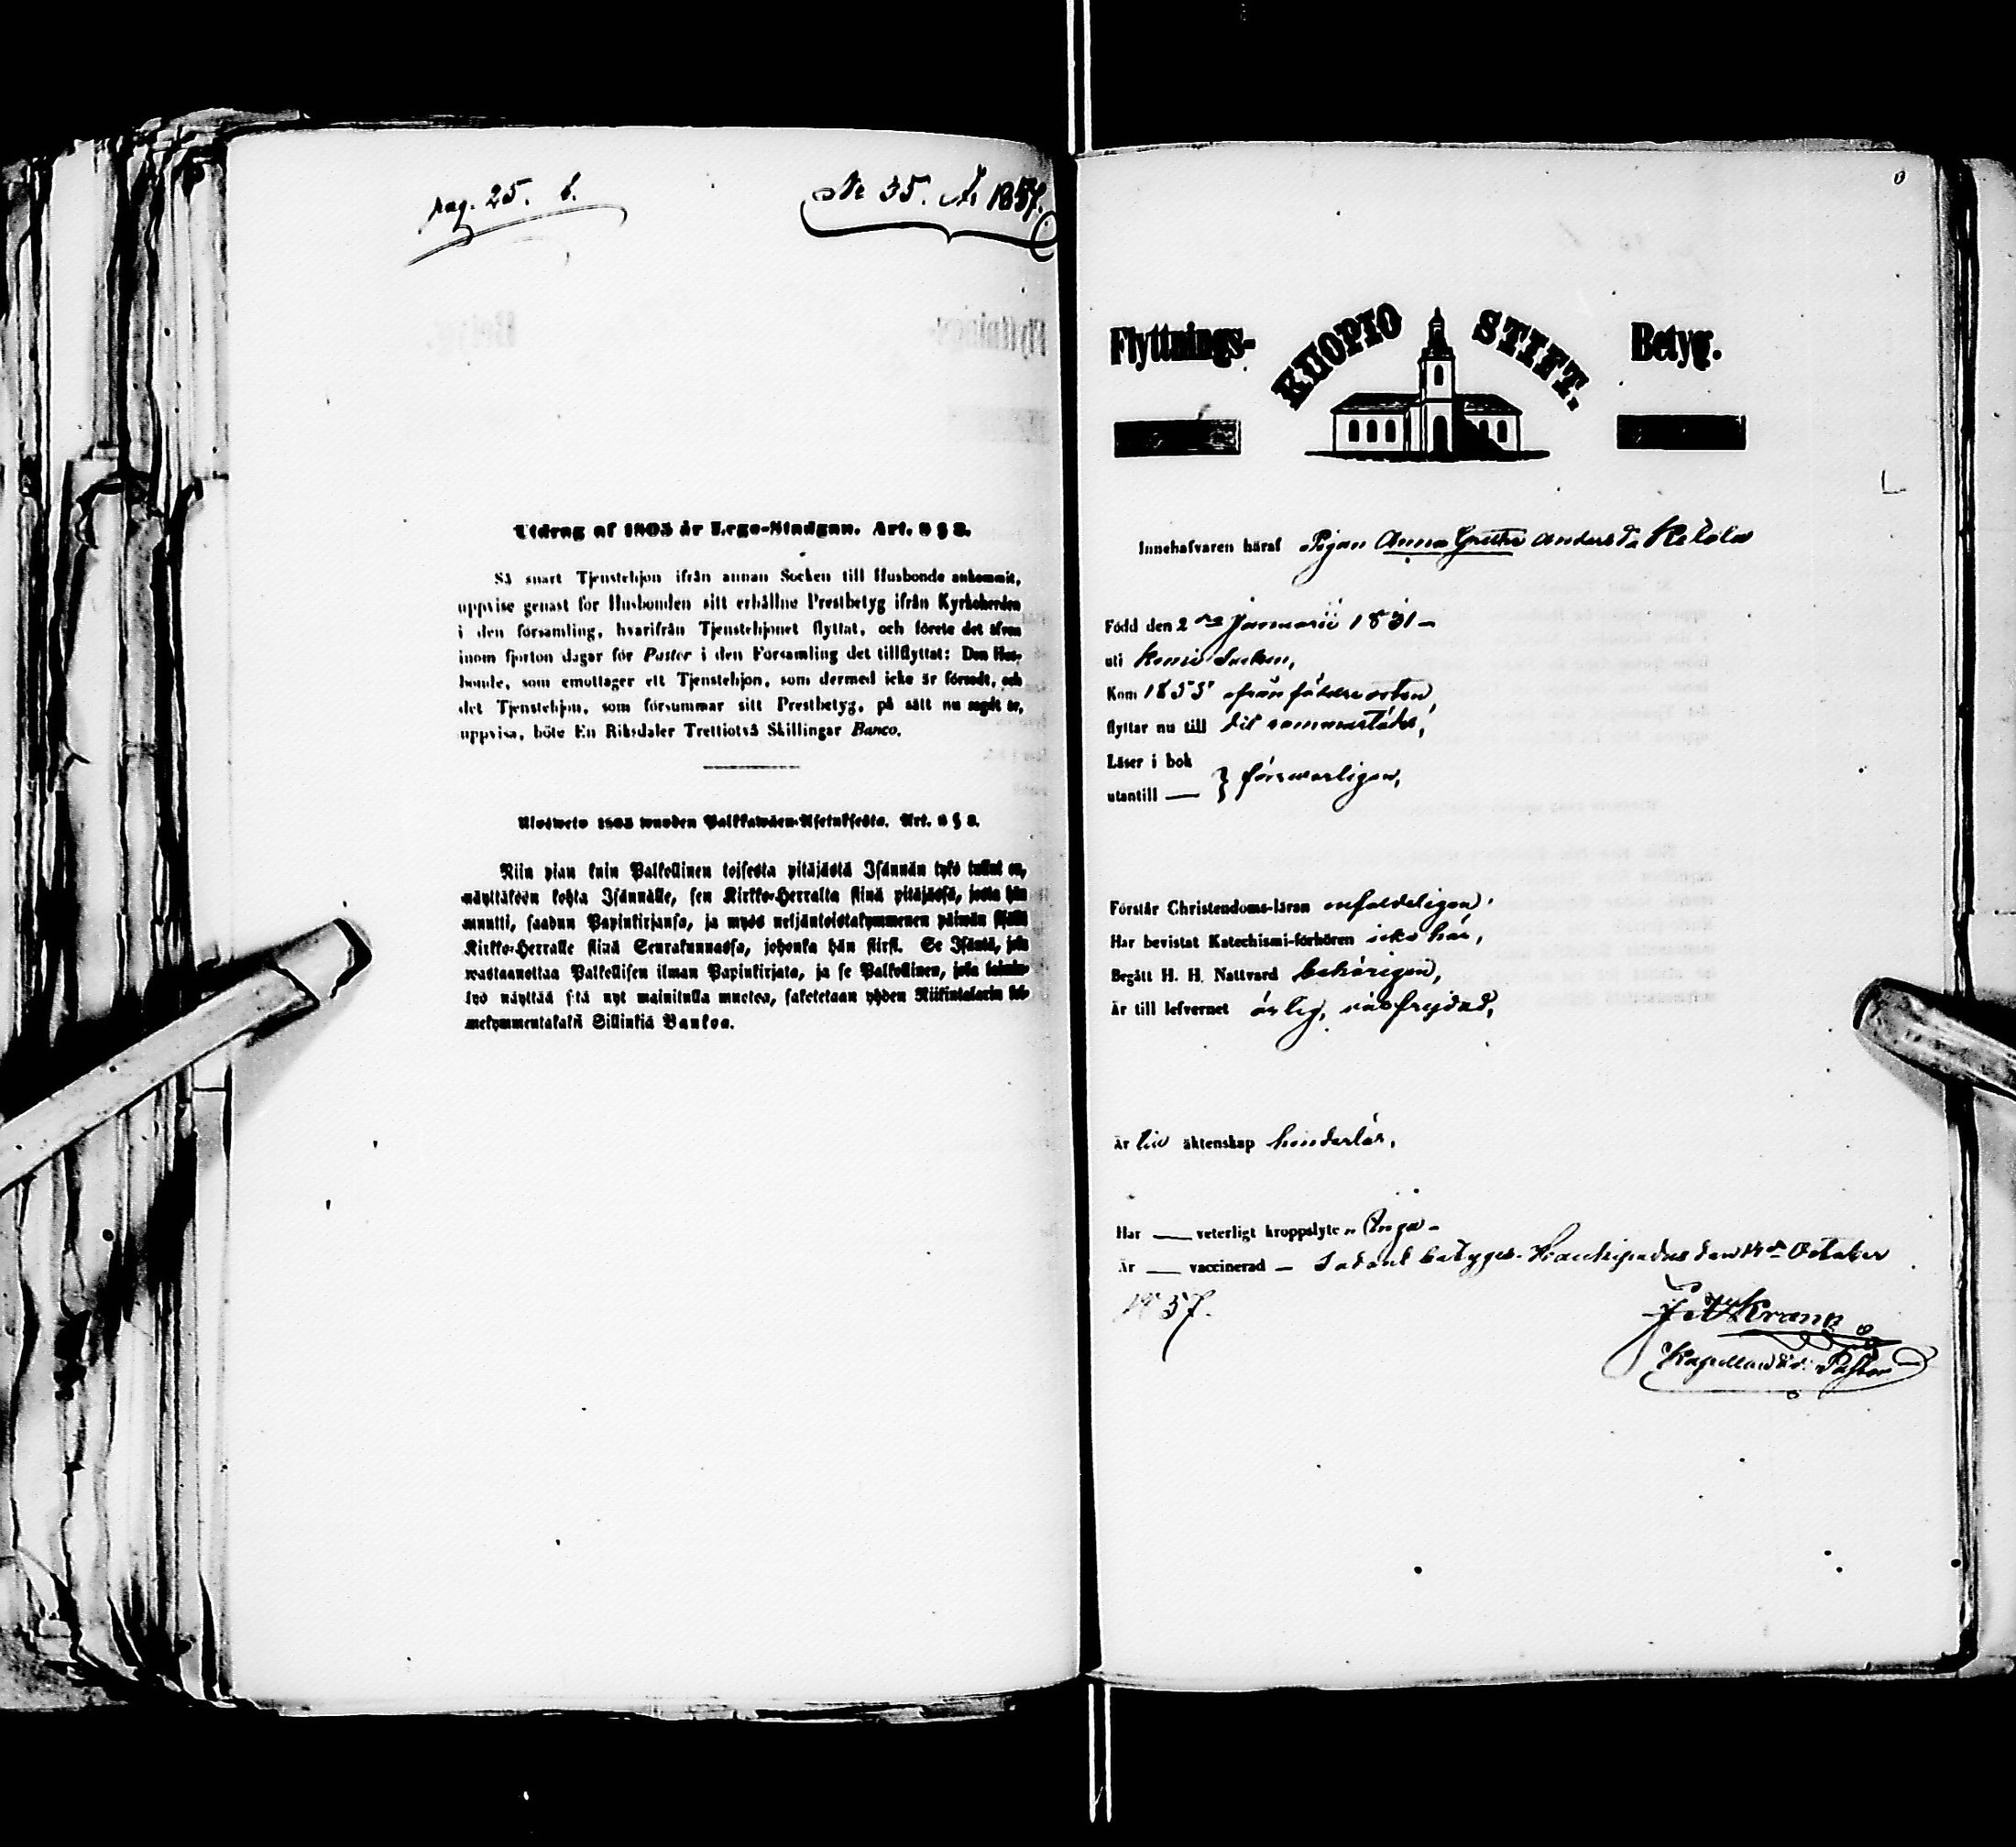 pag. 25. b.
No 35. År 1857.
Utdrag af 1805 år Lego-Stadgan. Art. 8 § 2.
Så snart Tjenstehjon ifrån annan Socken till Husbonde ankommit,
uppvise genast för Husbonden sitt erhållne Prestbetyg ifrån Kyrkoherden
i den församling, hvarifrån Tjenstehjonet flyttat, och förete det äfven
inom fjorton dagar för Pastor i den Församling det tillflyttat: Den Hus-
bonde, som emottager ett Tjenstehjon, som dermed icke är försedt, och
det Tjenstehjon, som försummar sitt Prestbetyg, på sätt nu sagdt är,
uppvisa, böte En Riksdaler Trettiotvå Skillingar Banco.
Ulosweto 1805 wuoden Palkkawäen-Asetuksesta. Art. 8 § 2.
Niin pian kuin Palkollinen toisesta pitäjästä Isännän tykö tullut on,
näyttäköön kohta Isännälle, sen Kirkko-Herralta siinä pitäjässä, josta hän
muutti, saadun Papinkirjansa, ja myös neljäntoistakymmenen päiwän sisällä
Kirkko-Herralle siinä Seurakunnassa, johonka hän siirsi. Se Isäntä, joka
wastaanottaa Palkollisen ilman Papinkirjata, ja se Palkollinen, joka laimin-
lyö näyttää sitä nyt mainitulla muotoa, saketetaan yhden Riikintalarin kol-
mekymmentäkaksi Sillinkiä Bankoa.
Flyttnings- KUOPIO STIFT. Betyg.
Innehafvaren häraf Pigan Anna Greta Anders dr
Född den 2dra Januarii 1831 –
uti Kemi Socken,
Kom 1855 ifrån födelseorten,
flyttar nu till dit sammastädes,
Läser i bok
utantill — } försvarligen,
Förstår Christendoms-läran enfaldeligen,
Har bevistat Katechismi-förhören icke här,
Begått H. H. Nattvard behörigen,
Är till lefvernet ärlig, väl frejdad,
Är till äktenskap hinderlös,
Har — veterligt kroppslyte – Inga –
Är — vaccinerad – Sådant betygas. den 14de October
1857.
Kapellan d.v. Pastor